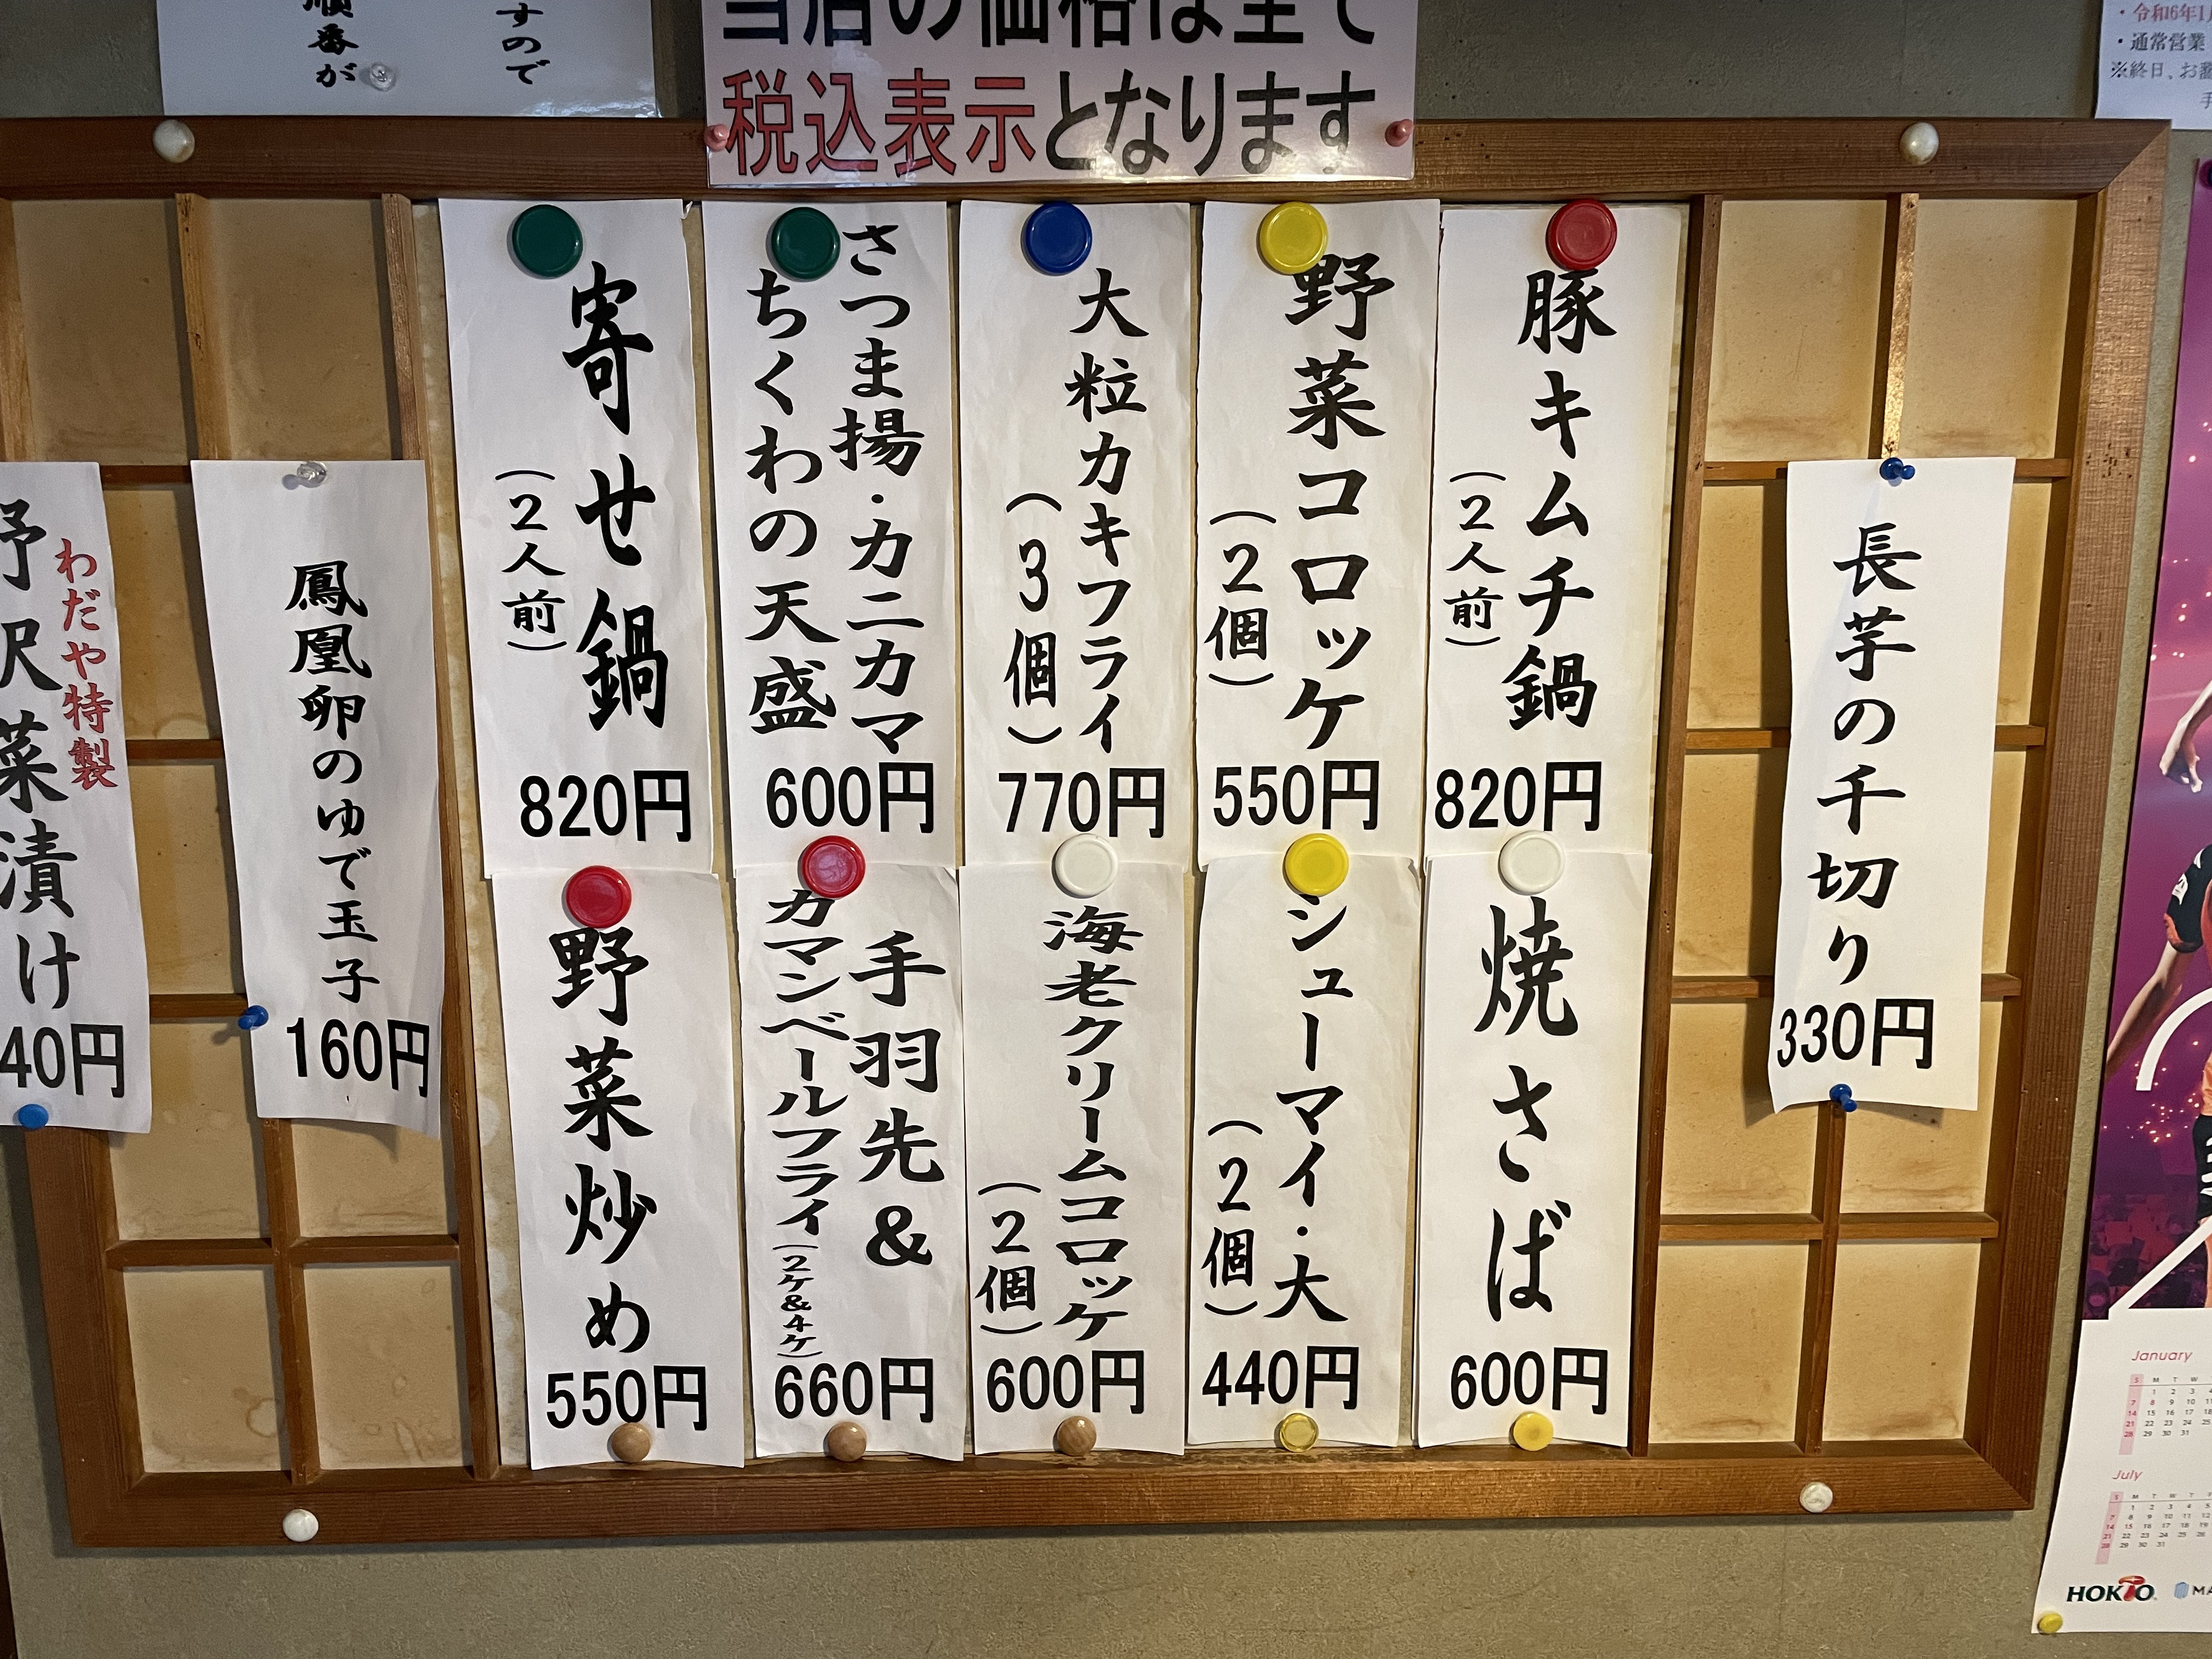 順番が
すので
当店の価格は全て
税込表示となります
・令和6年1月
・通常営業
※終日、お蕎
手
長芋の千切り
330円
豚キムチ鍋
(2人前)
820円
野菜コロッケ
(2個)
550円
大粒カキフライ
(3個)
770円
さつま揚・カニカマ
ちくわの天盛
600円
寄せ鍋
(2人前)
820円
焼さば
600円
シューマイ・大
(2個)
440円
海老クリームコロッケ
(2個)
600円
手羽先&
カマンベールフライ(2ケ&4ケ)
660円
野菜炒め
550円
鳳凰卵のゆで玉子
160円
わだや特製
野沢菜漬け
40円
January
July
HOKTO
MA